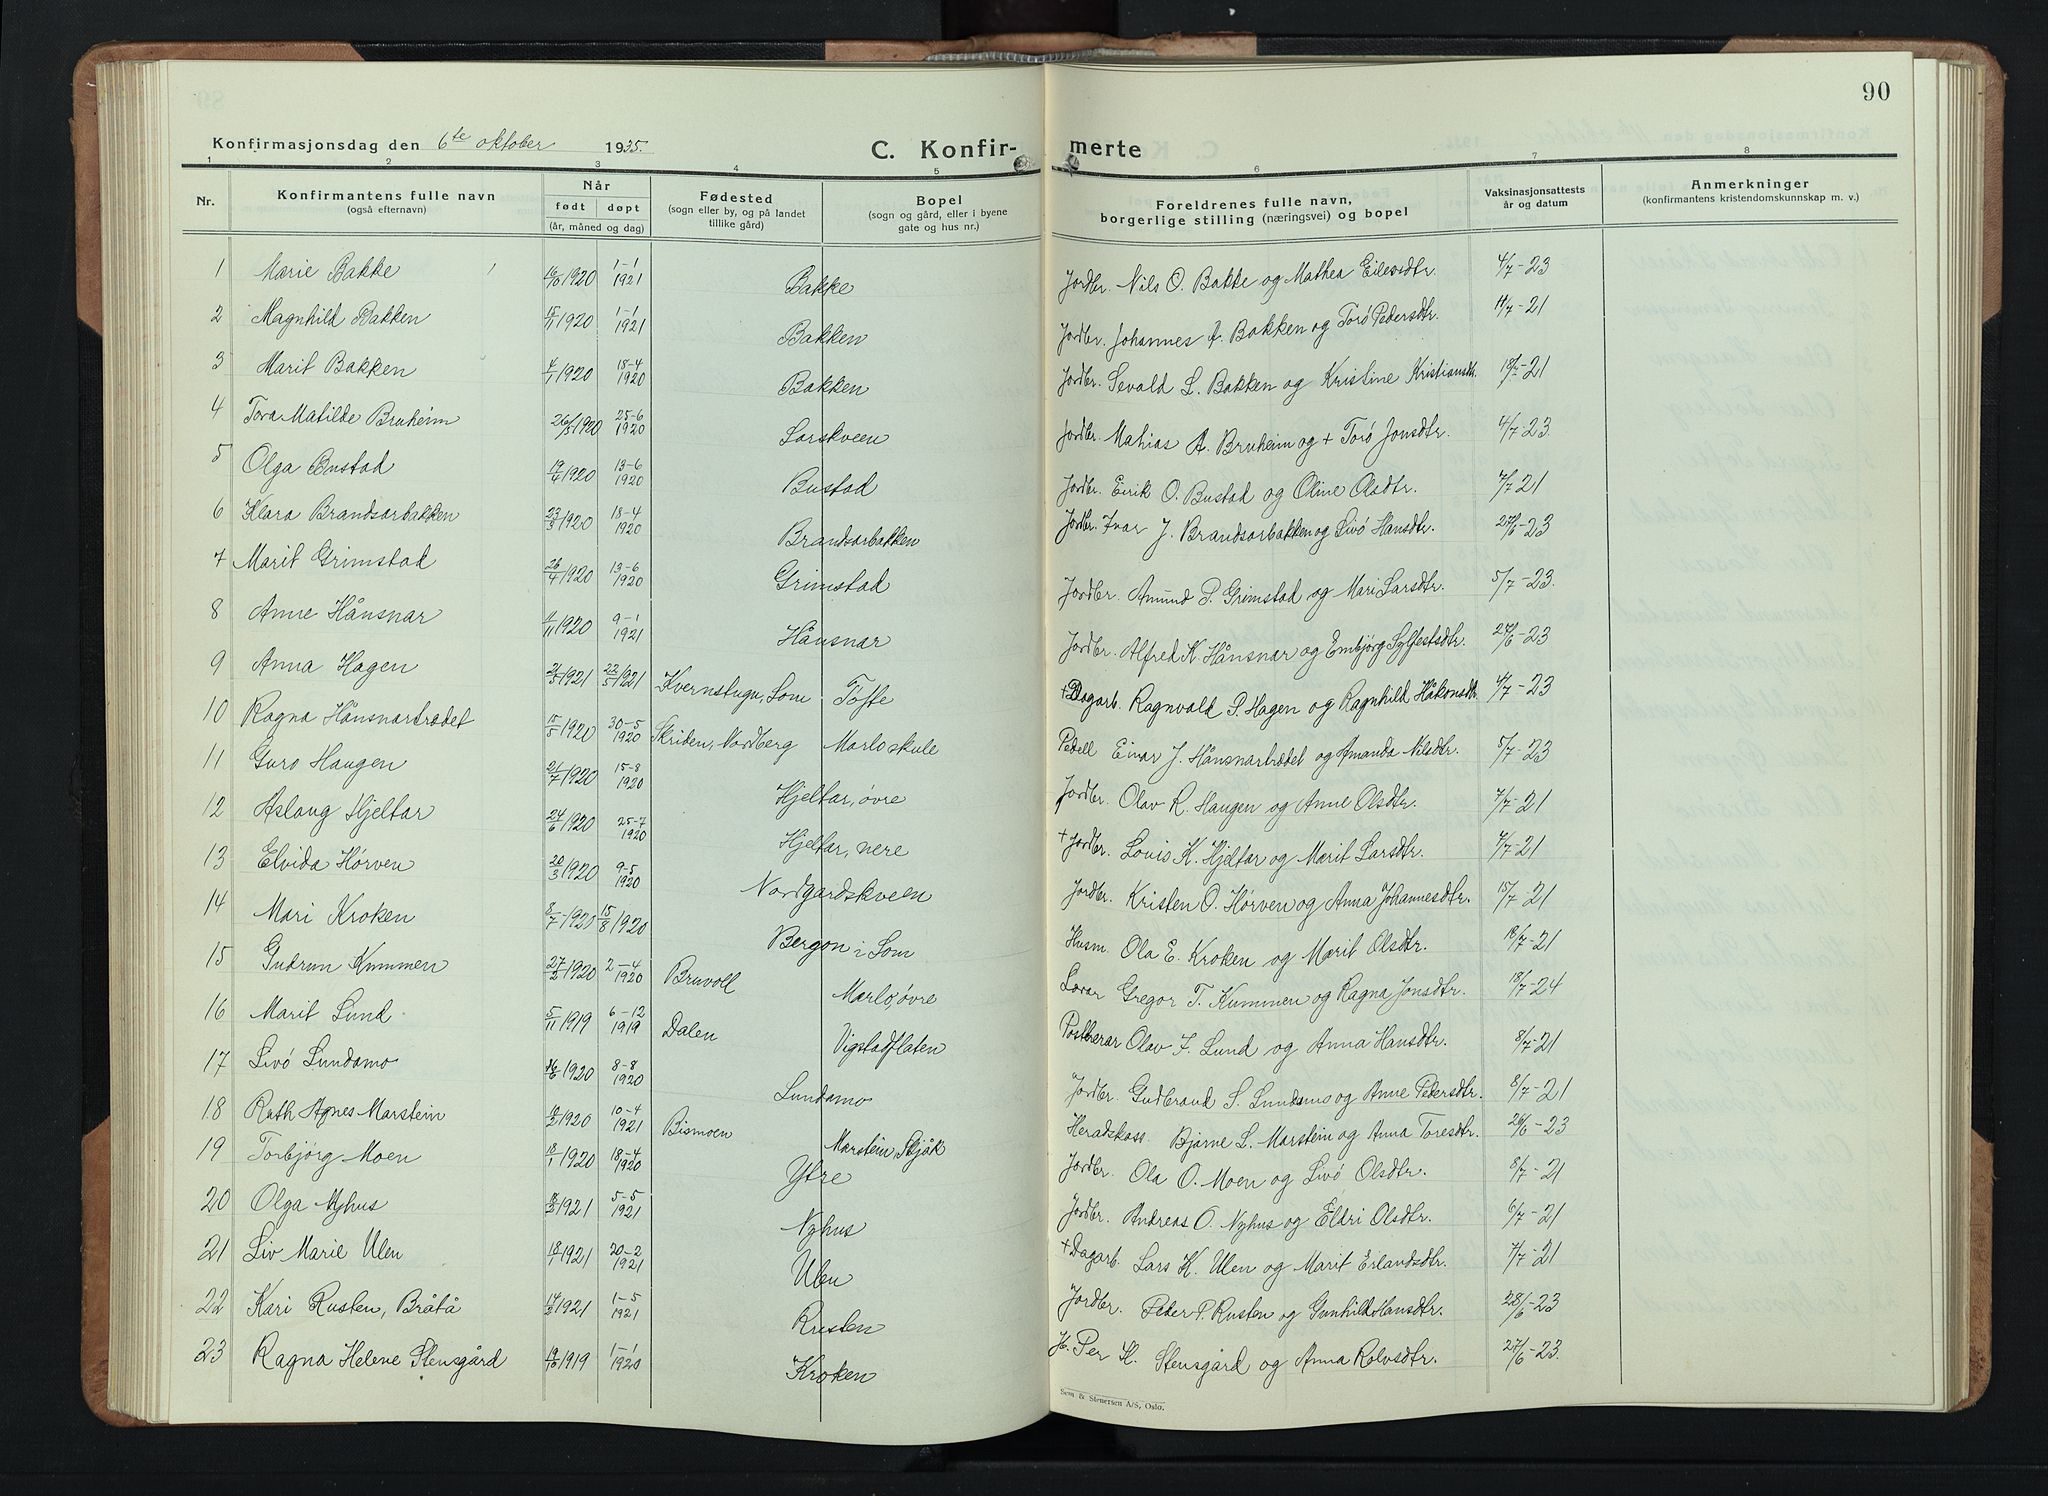 90
Konfirmasjonsdag den 6te oktober 1935.
C. Konfir- merte
1 2 3 4 5 6 7 8
Nr. Konfirmantens fulle navn (også efternavn) Når født døpt (år, måned og dag) Fødested (sogn eller by, og på landet tillike gård) Bopel (sogn og gård, eller i byene gate og hus nr.) Foreldrenes fulle navn, borgerlige stilling (næringsvei) og bopel Vaksinasjonsattests år og datum Anmerkninger (konfirmantens kristendomskunnskap m. v.)
1 Marie Bakke 16/10 1920 1-1 1921 Bakke Jordbr. Nils O. Bakke og Mathea Eilevsdtr. 4/7-23
2 Magnhild Bakken 15/11 1920 1-1 1921 Bakken Jordbr. Johannes A. Bakken og Torø Pedersdtr. 11/7-21
3 Marit Bakken 4/1 1920 18-4 1920 Bakken Jordbr. Sevald L. Bakken og Kristine Kristiansdtr. -21
4 Tora Matilde Bruheim 26/5 1920 25-6 1920 Larskveen Jordbr. Mathias A. Bruheim og + Torø Jonsdtr. 4/7-23.
5 Olga Bustad 19/4 1920 13-6 1920 Bustad Jordbr. Eirik O. Bustad og Oline Olsdtr. 7/7-21
6 Klara Brandsarbakken 23/3 1920 18-4 1920 Brandsarbakken Jordbr. Ivar J. Brandsarbakken og Livø Hansdtr. 27/6-23
7 Marit Grimstad 26/4 1920 13-6 1920 Grimstad Jordbr. Amund P. Grimstad og Mari Larsdtr. 5/7-23.
8 Anne Hånsnar 1/11 1920 9-1 1921 Hånsnar Jordbr. Alfred K. Hånsnar og Embjørg Sylfestsdtr. 27/6-23
9 Anna Hagen 21/3 1921 22/5 1921 Kvernstugu, Lom Tøfte + Dagarb. Ragnvald P. Hagen og Ragnhild Håkonsdtr. 4/7-23
10 Ragna Hånsnartrædet 15/5 1920 30-5 1920 Skriden, Nordberg Marlo skule Pedell Einar J. Hånsnartrædet og Amanda Nilsdtr. 5/7-23
11 Guro Haugen 21/7 1920 15-8 1920 Hjeltar, øvre Jordbr. Olav R. Haugen og Anne Olsdtr. 7/7-21
12 Aslaug Hjeltar 24/6 1920 25-7 1920 Hjeltar, nere + Jordbr. Louis K. Hjeltar og Marit Larsdtr. 7/7-21
13 Elvida Hørven 20/3 1920 9-5 1920 Nordgardskveen Jordbr. Kristen O. Hørven og Anna Johannesdtr. 15/7-21
14 Mari Kroken 8/7-1920 15/8 1920 Bergom i Lom Husm. Ola E. Kroken og Marit Olsdtr. 18/7-21
15 Gudrun Kummen 27/2 1920 2-4 1920 Bruvoll Marlo, øvre Lærar Gregor T. Kummen og Ragna Jonsdtr. 18/7-24
16 Marit Lund 5/11 1919 6-12 1919 Dalen Vigstadflaten Postberar Olav J. Lund og Anna Hansdtr. 8/7-21
17 Livø Lundamo 16/6 1920 8-8 1920 Lundamo Jordbr. Gudbrand S. Lundamo og Anne Pedersdtr. 8/7-21
18 Ruth Agnes Marstein 1920 10-4 1921 Bismoen Marstein, Skjåk Heradskass. Bjarne L. Marstein og Anna Toresdtr. 26/6-23
19 Torbjørg Moen 18/1 1920 18-4 1920 Ytre Jordbr. Ola O. Moen og Livø Olsdtr. 8/7-21
20 Olga Nyhus 1921 5-5 1921 Nyhus Jordbr. Andreas O. Nyhus og Eldri Olsdtr. 6/7-21
21 Liv Marie Ulen 18/1 1921 20-2 1921 Ulen + Dagarb. Lars K. Ulen og Marit Erlandsdtr. 7/7-21
22 Kari Rusten, Bråtå 14/3 1921 1-5 1921 Rusten Jordbr. Peder P. Rusten og Gunhild Hansdtr. 28/6-23
23 Ragna Helene Stensgård 19/10 1919 1-1 1920 Kroken H. Per H. Stensgård og Anna Rolvsdtr. 27/6-23.
Sem & Stenersen A/S, Oslo.